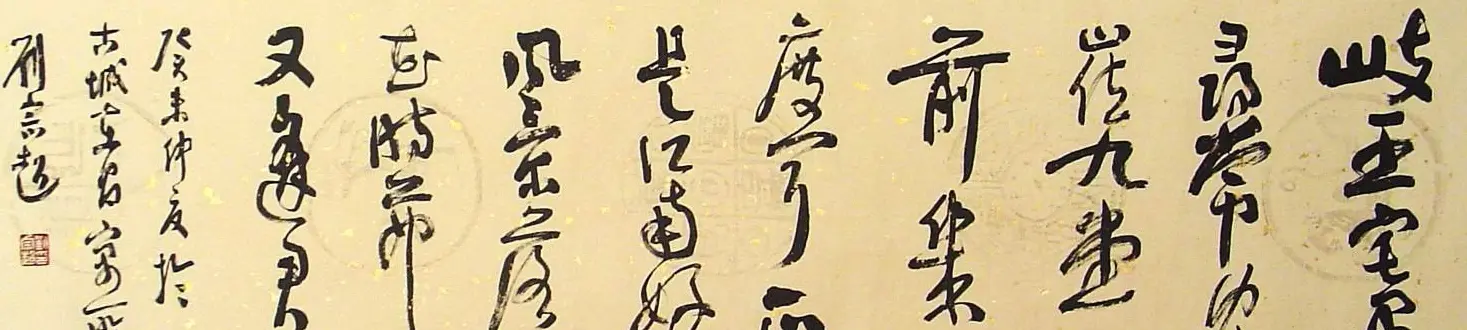 岐王宅裏
尋常見
崔九堂
前幾
度聞正
是江南好
風景落
花時節
又逢君
癸未仲夏於
古城寓所
劉宗超